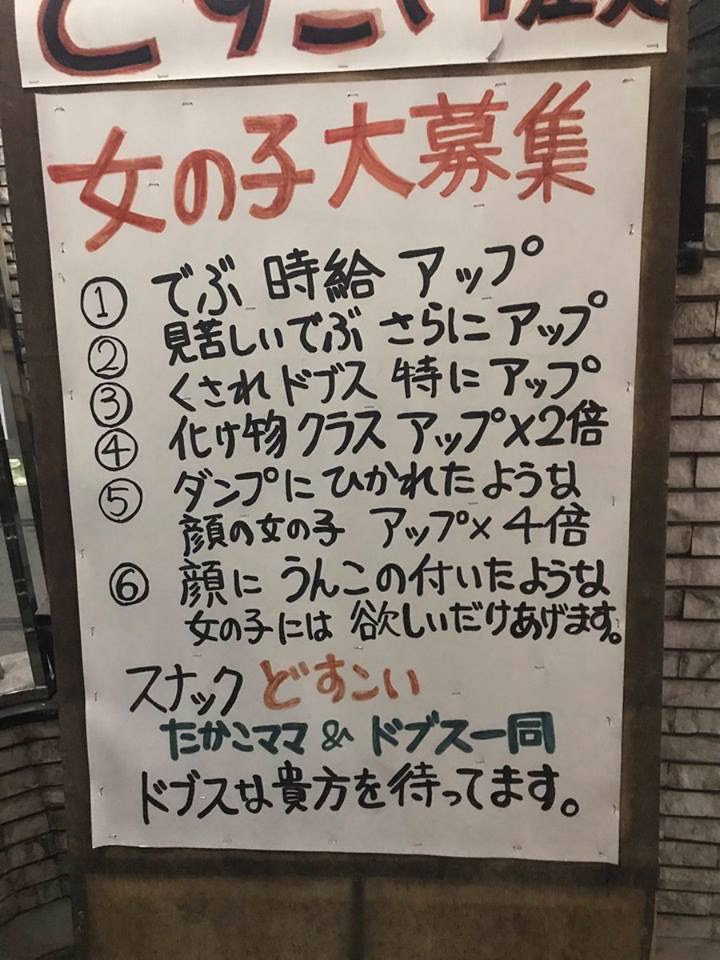 どすこい
女の子大募集
① でぶ 時給 アップ
② 見苦しいでぶ さらにアップ
③ くされドブス 特にアップ
④ 化け物クラス アップ×2倍
⑤ ダンプにひかれたような
顔の女の子 アップ×4倍
⑥ 顔にうんこの付いたような
女の子には欲しいだけあげます。
スナック どすこい
たかこママ & ドブス一同
ドブスな貴方を待ってます。